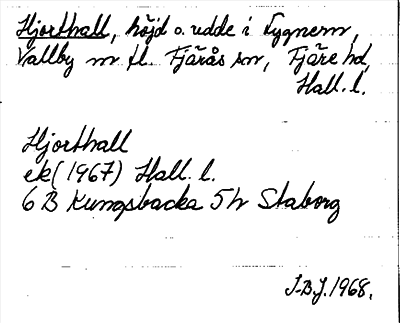 Hjorthall, höjd o. udde i Lygnern,
Vallby m fl. Fjärås sn, Fjäre hd,
Hall. l.
Hjorthall
ek (1967) Hall. l.
6 B Kungsbacka 5h Staborg
I.B.J. 1968.